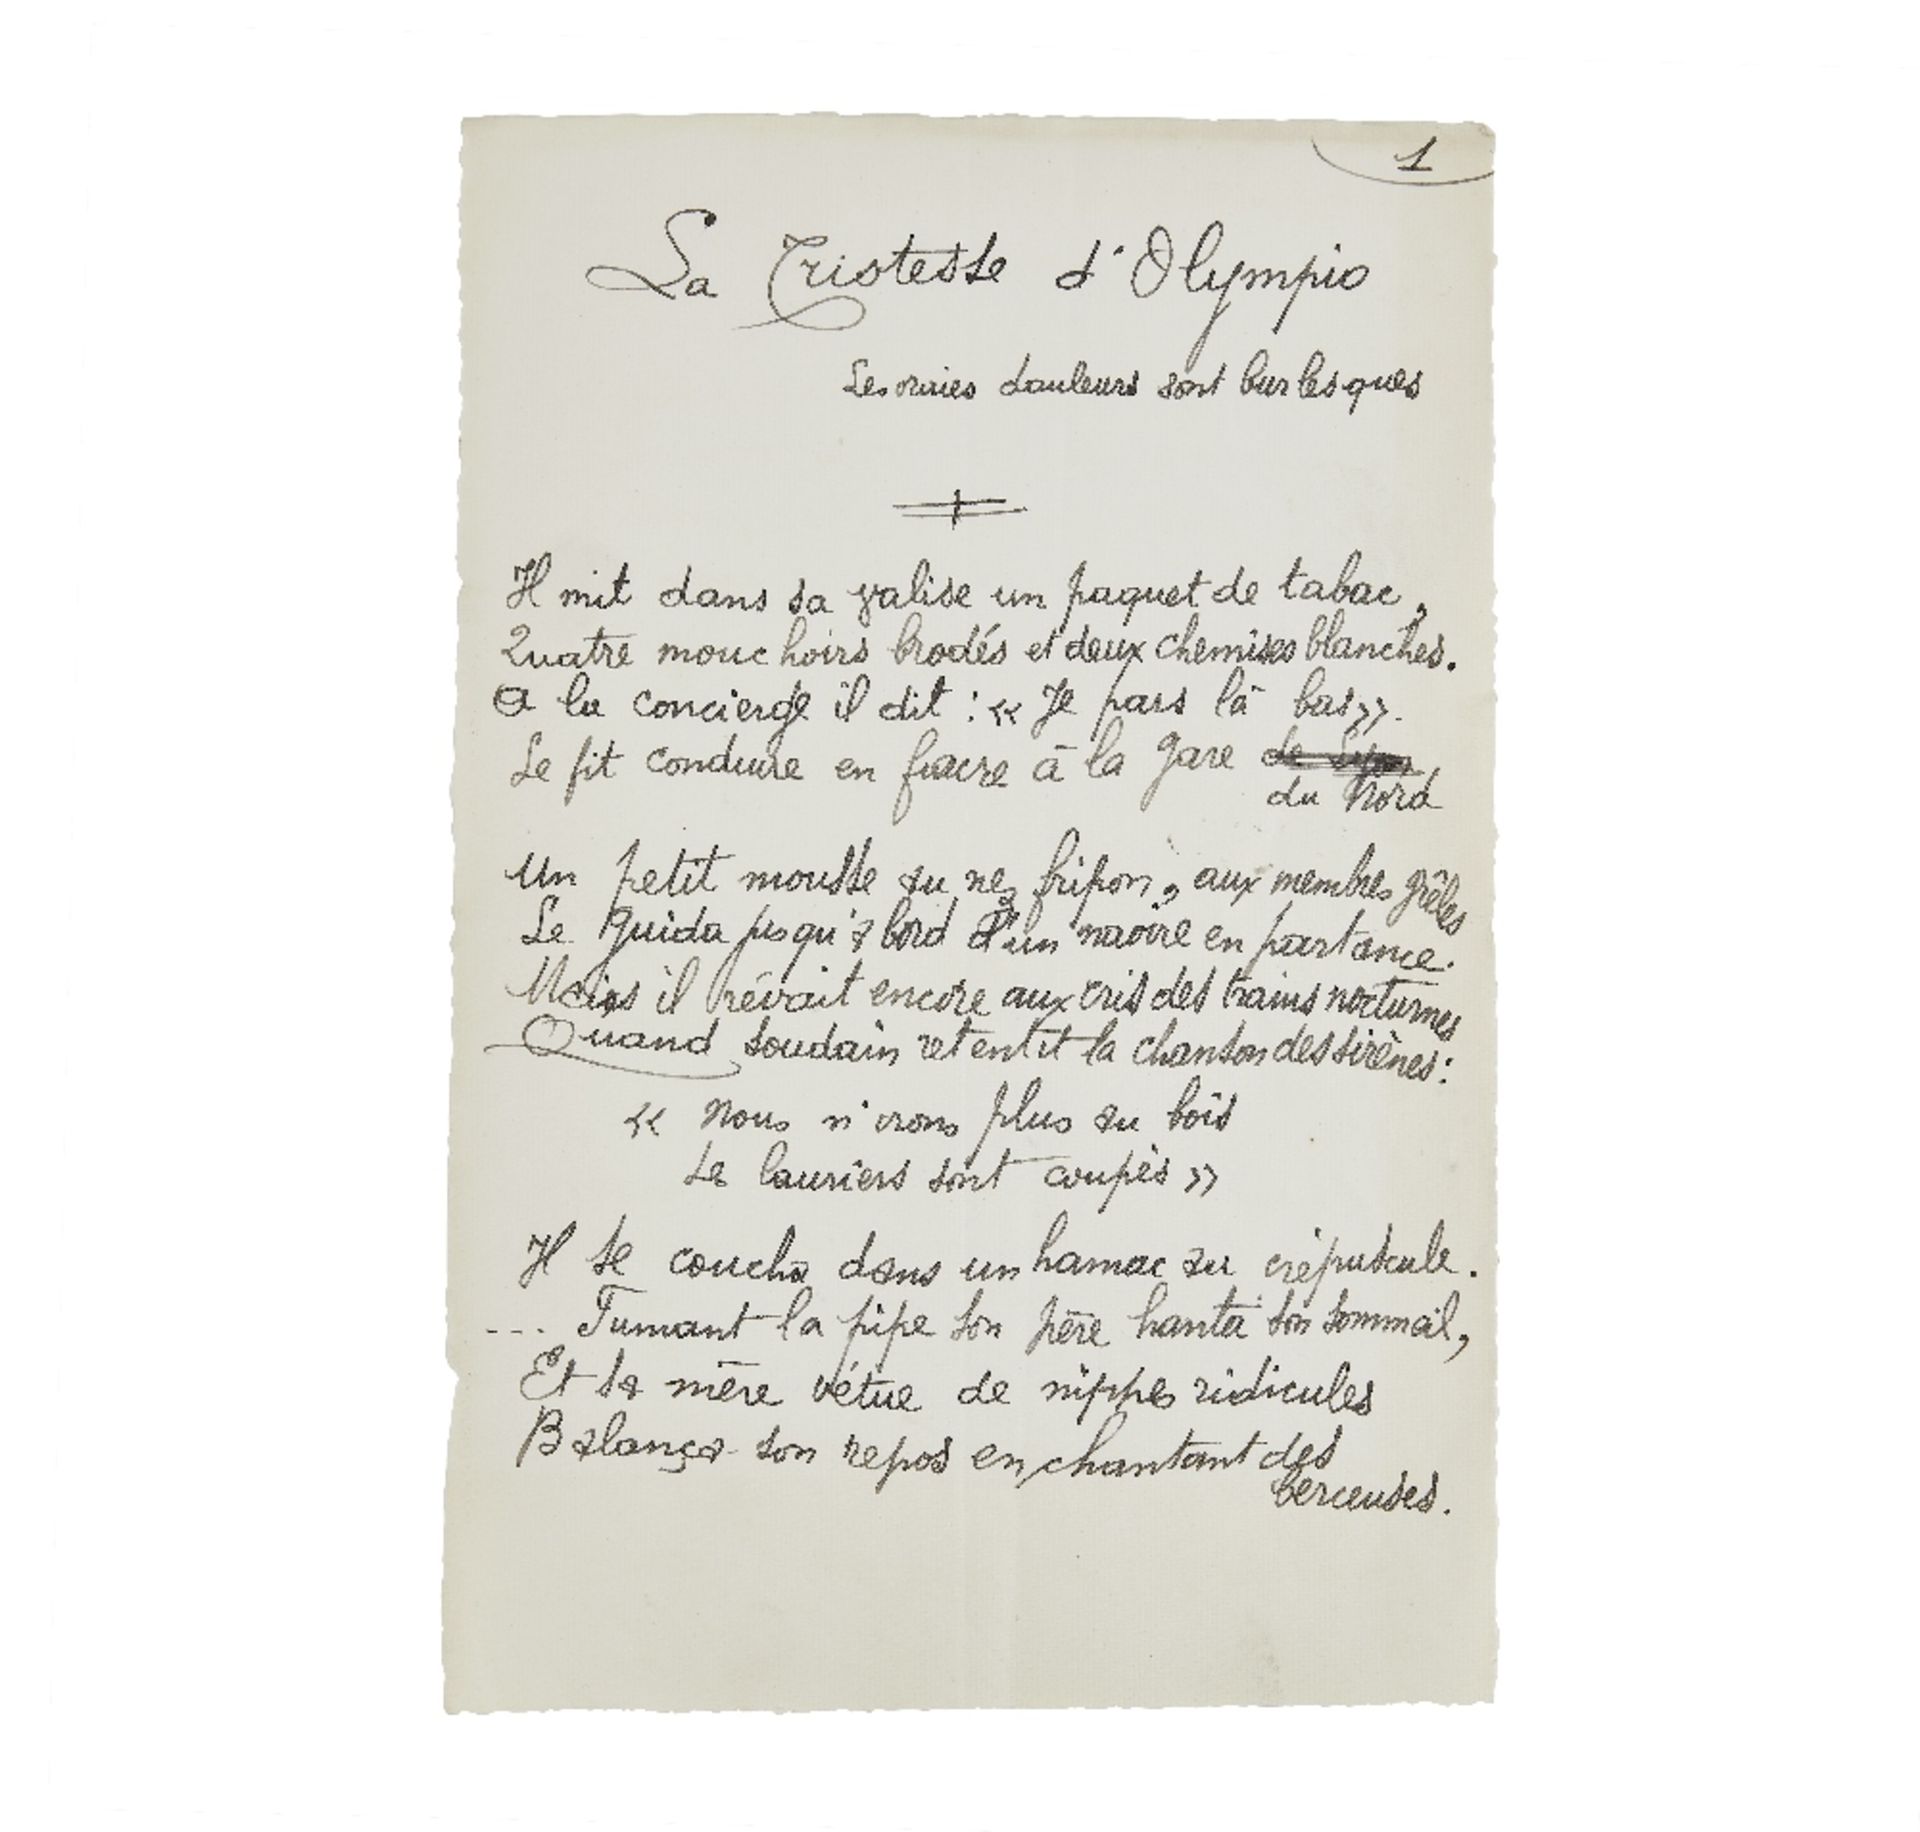 1
La Tristesse d'Olympio
Les vraies douleurs sont burlesques
Il mit dans sa valise un paquet de tabac,
Quatre mouchoirs brodés et deux chemises blanches.
A la concierge il dit : « Je pars là bas ».
Se fit conduire en fiacre à la gare de Lyon
du Nord
Un petit mousse au nez fripon, aux membres grêles
Le guida jusqu'à bord d'un navire en partance.
Mais il rêvait encore aux cris des trains nocturnes
Quand soudain retentit la chanson des sirènes :
« Nous n'irons plus au bois
Les lauriers sont coupés »
Il se coucha dans un hamac au crépuscule.
... Fumant la pipe son père hanta son sommeil,
Et sa mère vêtue de nippes ridicules
Balança son repos en chantant des
berceuses.